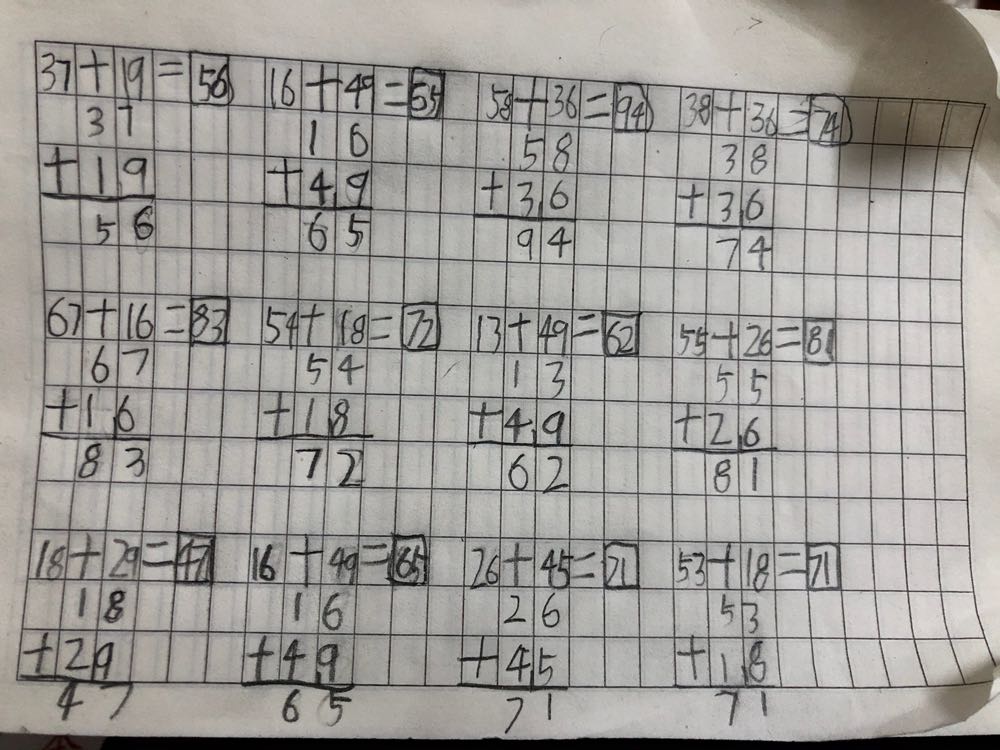 37+19=56 16+49=65 58+36=94 38+36=74
37 16 58 38
+19 +49 +36 +36
56 65 94 74
67+16=83 54+18=72 13+49=62 55+26=81
67 54 13 55
+16 +18 +49 +26
83 72 62 81
18+29=47 16+49=65 26+45=71 53+18=71
18 16 26 53
+29 +49 +45 +18
47 65 71 71